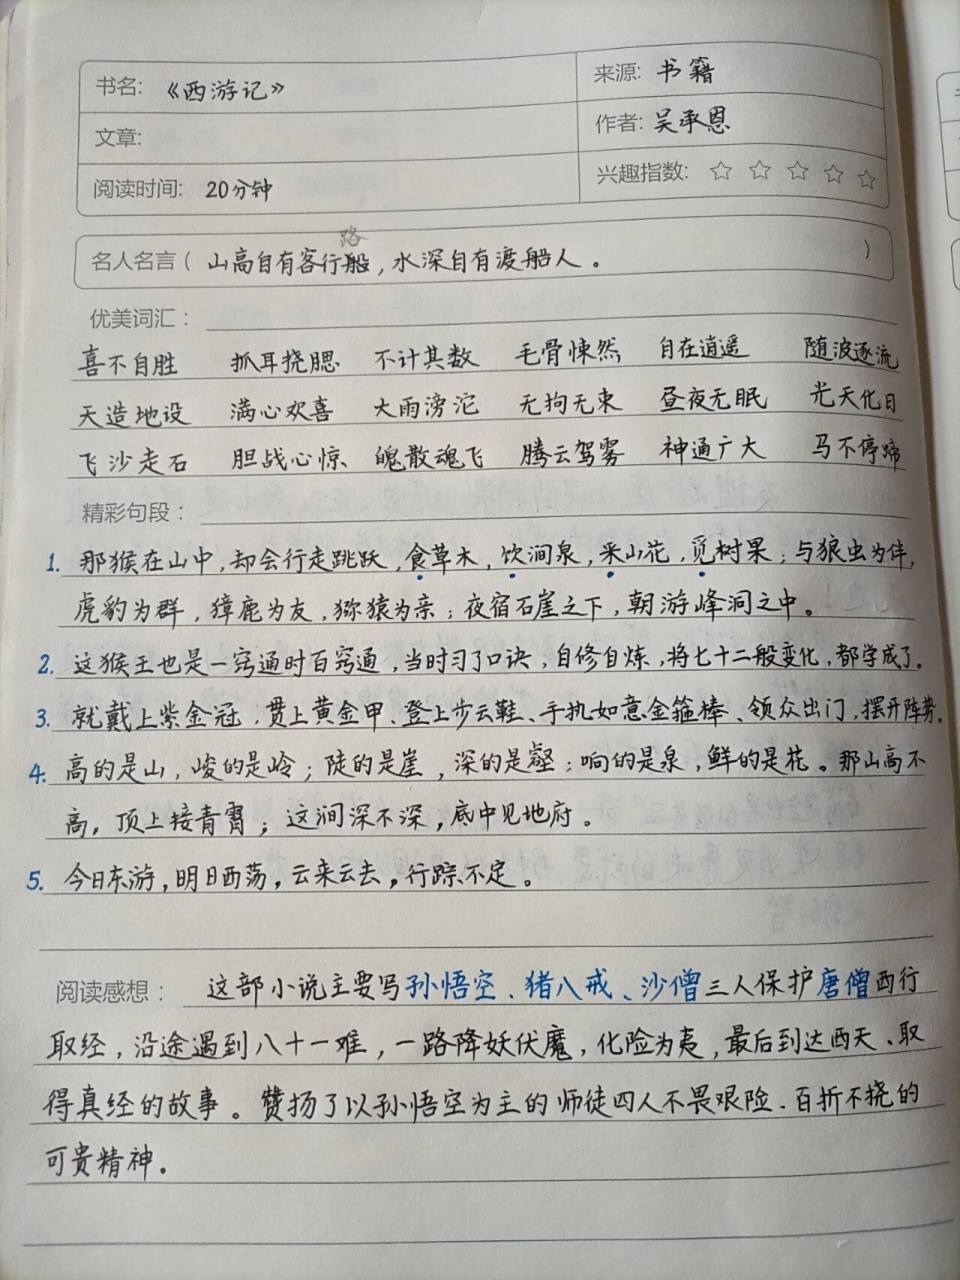 书名: 《西游记》 来源: 书籍
文章: 作者: 吴承恩
阅读时间: 20分钟 兴趣指数: ☆ ☆ ☆ ☆ ☆
路
名人名言( 山高自有客行船, 水深自有渡船人。 )
优美词汇:
喜不自胜 抓耳挠腮 不计其数 毛骨悚然 自在逍遥 随波逐流
天造地设 满心欢喜 大雨滂沱 无拘无束 昼夜无眠 光天化日
飞沙走石 胆战心惊 魄散魂飞 腾云驾雾 神通广大 马不停蹄
精彩句段:
1. 那猴在山中, 却会行走跳跃, 食草木, 饮涧泉, 采山花, 觅树果; 与狼虫为伴,
虎豹为群, 獐鹿为友, 猕猿为亲; 夜宿石崖之下, 朝游峰洞之中。
2. 这猴王也是一窍通时百窍通, 当时习了口诀, 自修自炼, 将七十二般变化, 都学成了。
3. 就戴上紫金冠, 贯上黄金甲、登上步云鞋、手执如意金箍棒、领众出门, 摆开阵势。
4. 高的是山, 峻的是岭; 陡的是崖, 深的是壑; 响的是泉, 鲜的是花。那山高不
高, 顶上接青霄; 这涧深不深, 底中见地府。
5. 今日东游, 明日西荡, 云来云去, 行踪不定。
阅读感想: 这部小说主要写孙悟空、猪八戒、沙僧三人保护唐僧西行
取经, 沿途遇到八十一难, 一路降妖伏魔, 化险为夷, 最后到达西天、取
得真经的故事。赞扬了以孙悟空为主的师徒四人不畏艰险、百折不挠的
可贵精神。